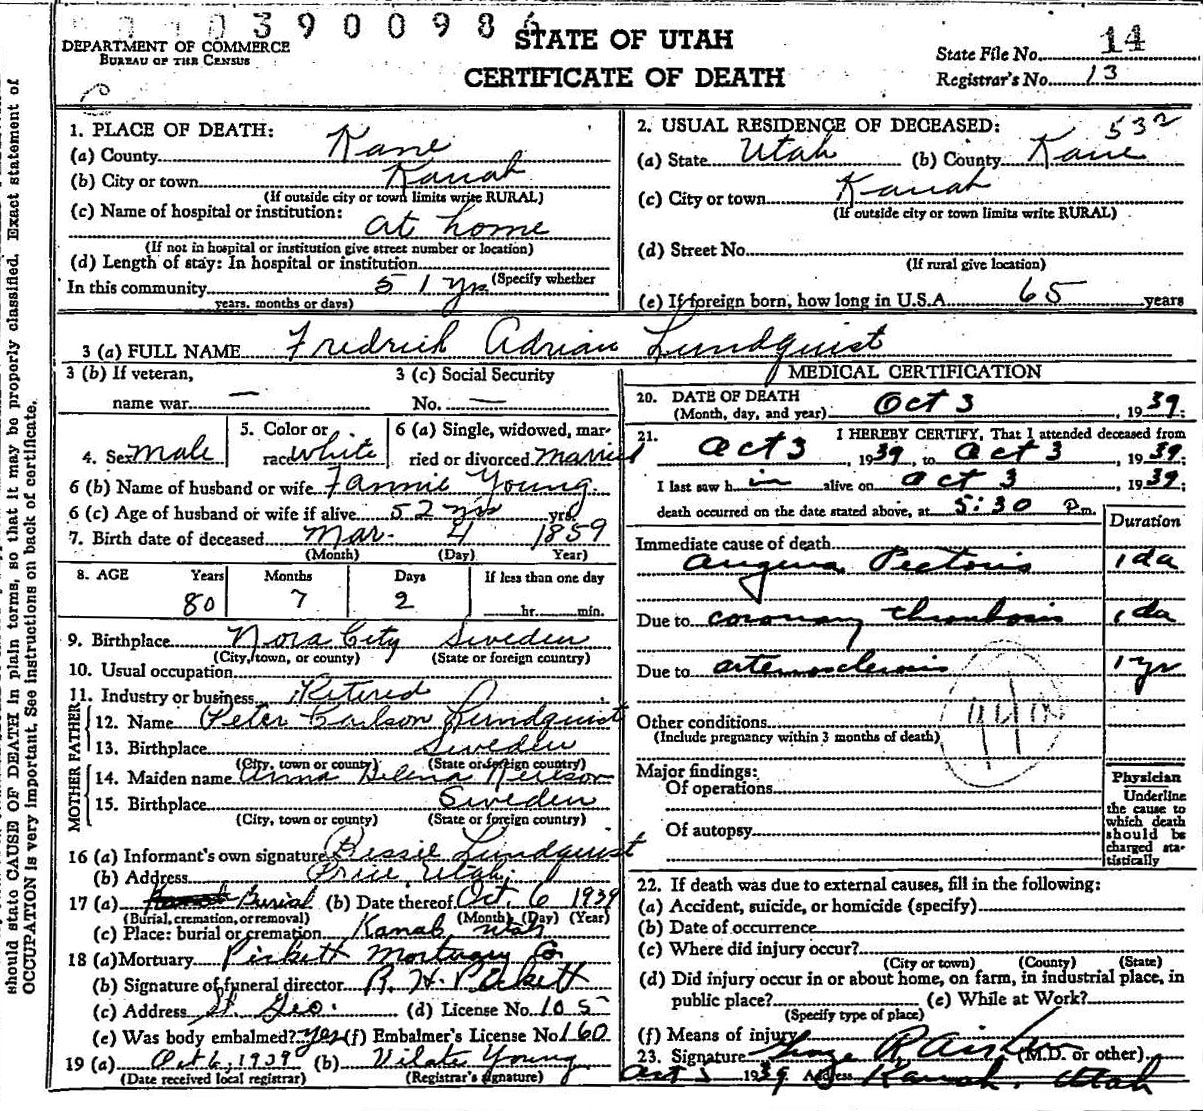 0390098
STATE OF UTAH
CERTIFICATE OF DEATH
DEPARTMENT OF COMMERCE
BUREAU OF THE CENSUS
State File No. 14
Registrar's No. 13
should state CAUSE OF DEATH in plain terms, so that it may be properly classified. Exact statement of
OCCUPATION is very important. See instructions on back of certificate.
1. PLACE OF DEATH:
(a) County Kane
(b) City or town Kanab
(If outside city or town limits write RURAL)
(c) Name of hospital or institution:
at home
(If not in hospital or institution give street number or location)
(d) Length of stay: In hospital or institution
(Specify whether
In this community 51 yrs
years, months or days)
2. USUAL RESIDENCE OF DECEASED: 532
(a) State Utah (b) County Kane
(c) City or town Kanab
(If outside city or town limits write RURAL)
(d) Street No.
(If rural give location)
(e) If foreign born, how long in U.S.A. 65 years
3 (a) FULL NAME Fredrick Adrian Lundquist
3 (b) If veteran,
name war —
3 (c) Social Security
No. —
4. Sex Male
5. Color or
race White
6 (a) Single, widowed, mar-
ried or divorced Married
6 (b) Name of husband or wife Fannie Young
6 (c) Age of husband or wife if alive 52 yrs yrs.
7. Birth date of deceased Mar. 4 1859
(Month) (Day) Year)
8. AGE Years Months Days If less than one day
80 7 2 hr. min.
9. Birthplace Nora City Sweden
(City, town, or county) (State or foreign country)
10. Usual occupation
11. Industry or business Retired
FATHER
12. Name Peter Carlson Lundquist
13. Birthplace Sweden
(City, town or county) (State or foreign country)
MOTHER
14. Maiden name Anna Helena
15. Birthplace Sweden
(City, town or county) (State or foreign country)
16 (a) Informant's own signature Bessie Lundquist
(b) Address Price, Utah.
17 (a) Burial (b) Date thereof Oct. 6 1939
(Burial, cremation, or removal) (Month) (Day) (Year)
(c) Place: burial or cremation Kanab, Utah
18 (a) Mortuary Pickett Mortuary Co
(b) Signature of funeral director R. H. Pickett
(c) Address St. Geo. (d) License No. 105
(e) Was body embalmed? Yes (f) Embalmer's License No. 160
19 (a) Oct 6, 1939 (b) Vilate Young
(Date received local registrar) (Registrar's signature)
MEDICAL CERTIFICATION
20. DATE OF DEATH
(Month, day, and year) Oct 3, 1939;
21. I HEREBY CERTIFY, That I attended deceased from
Oct 3, 1939, to Oct 3, 1939;
I last saw h im alive on Oct 3, 1939;
death occurred on the date stated above, at 5:30 P.m.
Duration
Immediate cause of death
Angina Pectoris 1 da
Due to coronary thrombosis 1 da
Due to 1 yr
Other conditions
(Include pregnancy within 3 months of death)
Major findings:
Of operations
Of autopsy
Physician
Underline
the cause to
which death
should be
charged sta-
tistically
22. If death was due to external causes, fill in the following:
(a) Accident, suicide, or homicide (specify)
(b) Date of occurrence
(c) Where did injury occur?
(City or town) (County) (State)
(d) Did injury occur in or about home, on farm, in industrial place, in
public place? (e) While at Work?
(Specify type of place)
(f) Means of injury
23. Signature George R. Aiken (M.D. or other)
Oct 5 1939 Address Kanab, Utah